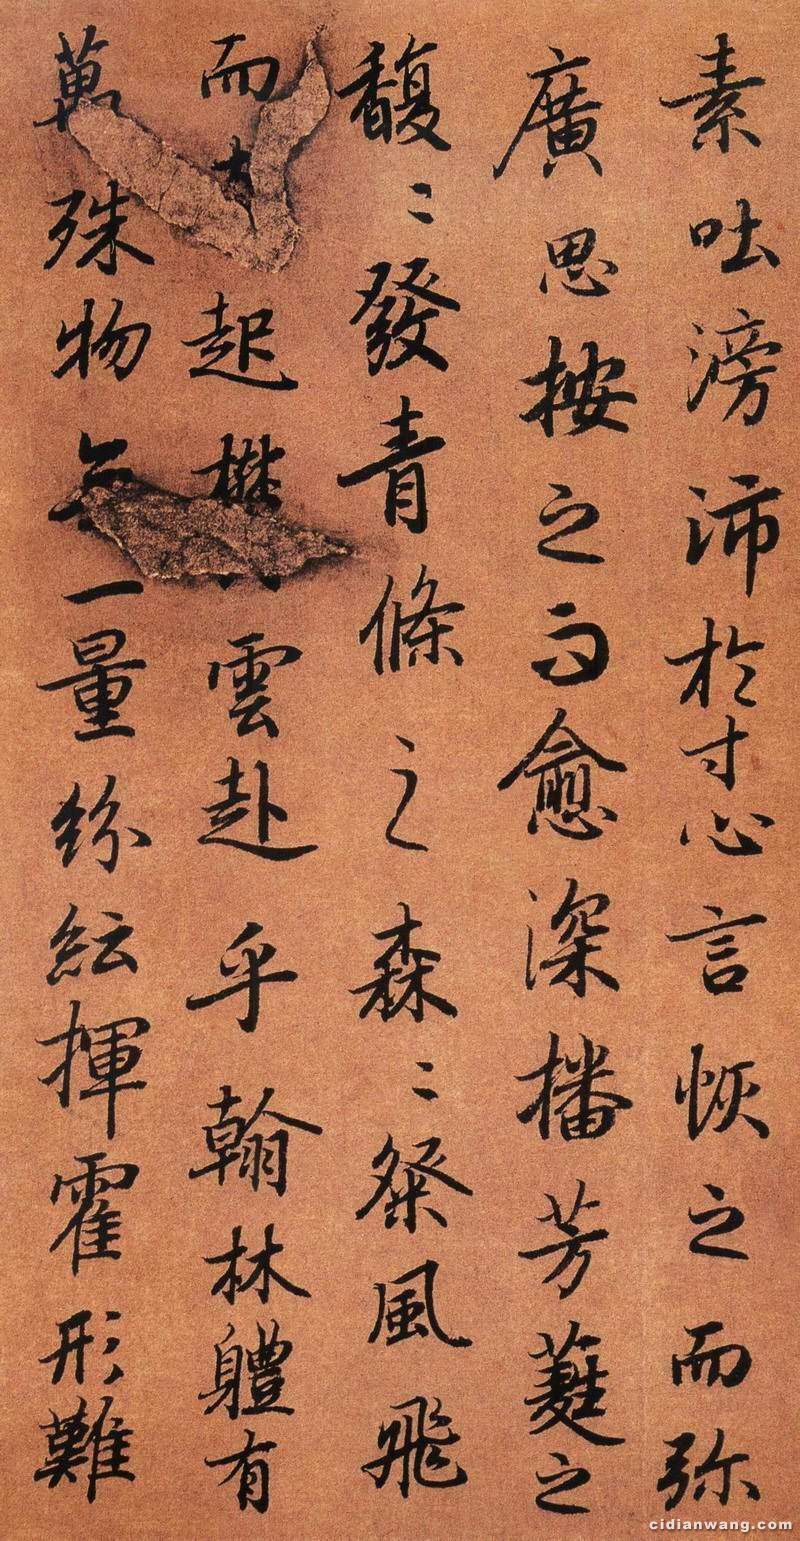 素吐滂沛於寸心言恢之而弥
廣思按之而愈深播芳蕤之
馥〻發青條之森〻粲風飛
而起雲赴乎翰林軆有
萬殊物無一量紛紜揮霍形難
cidianwang.com